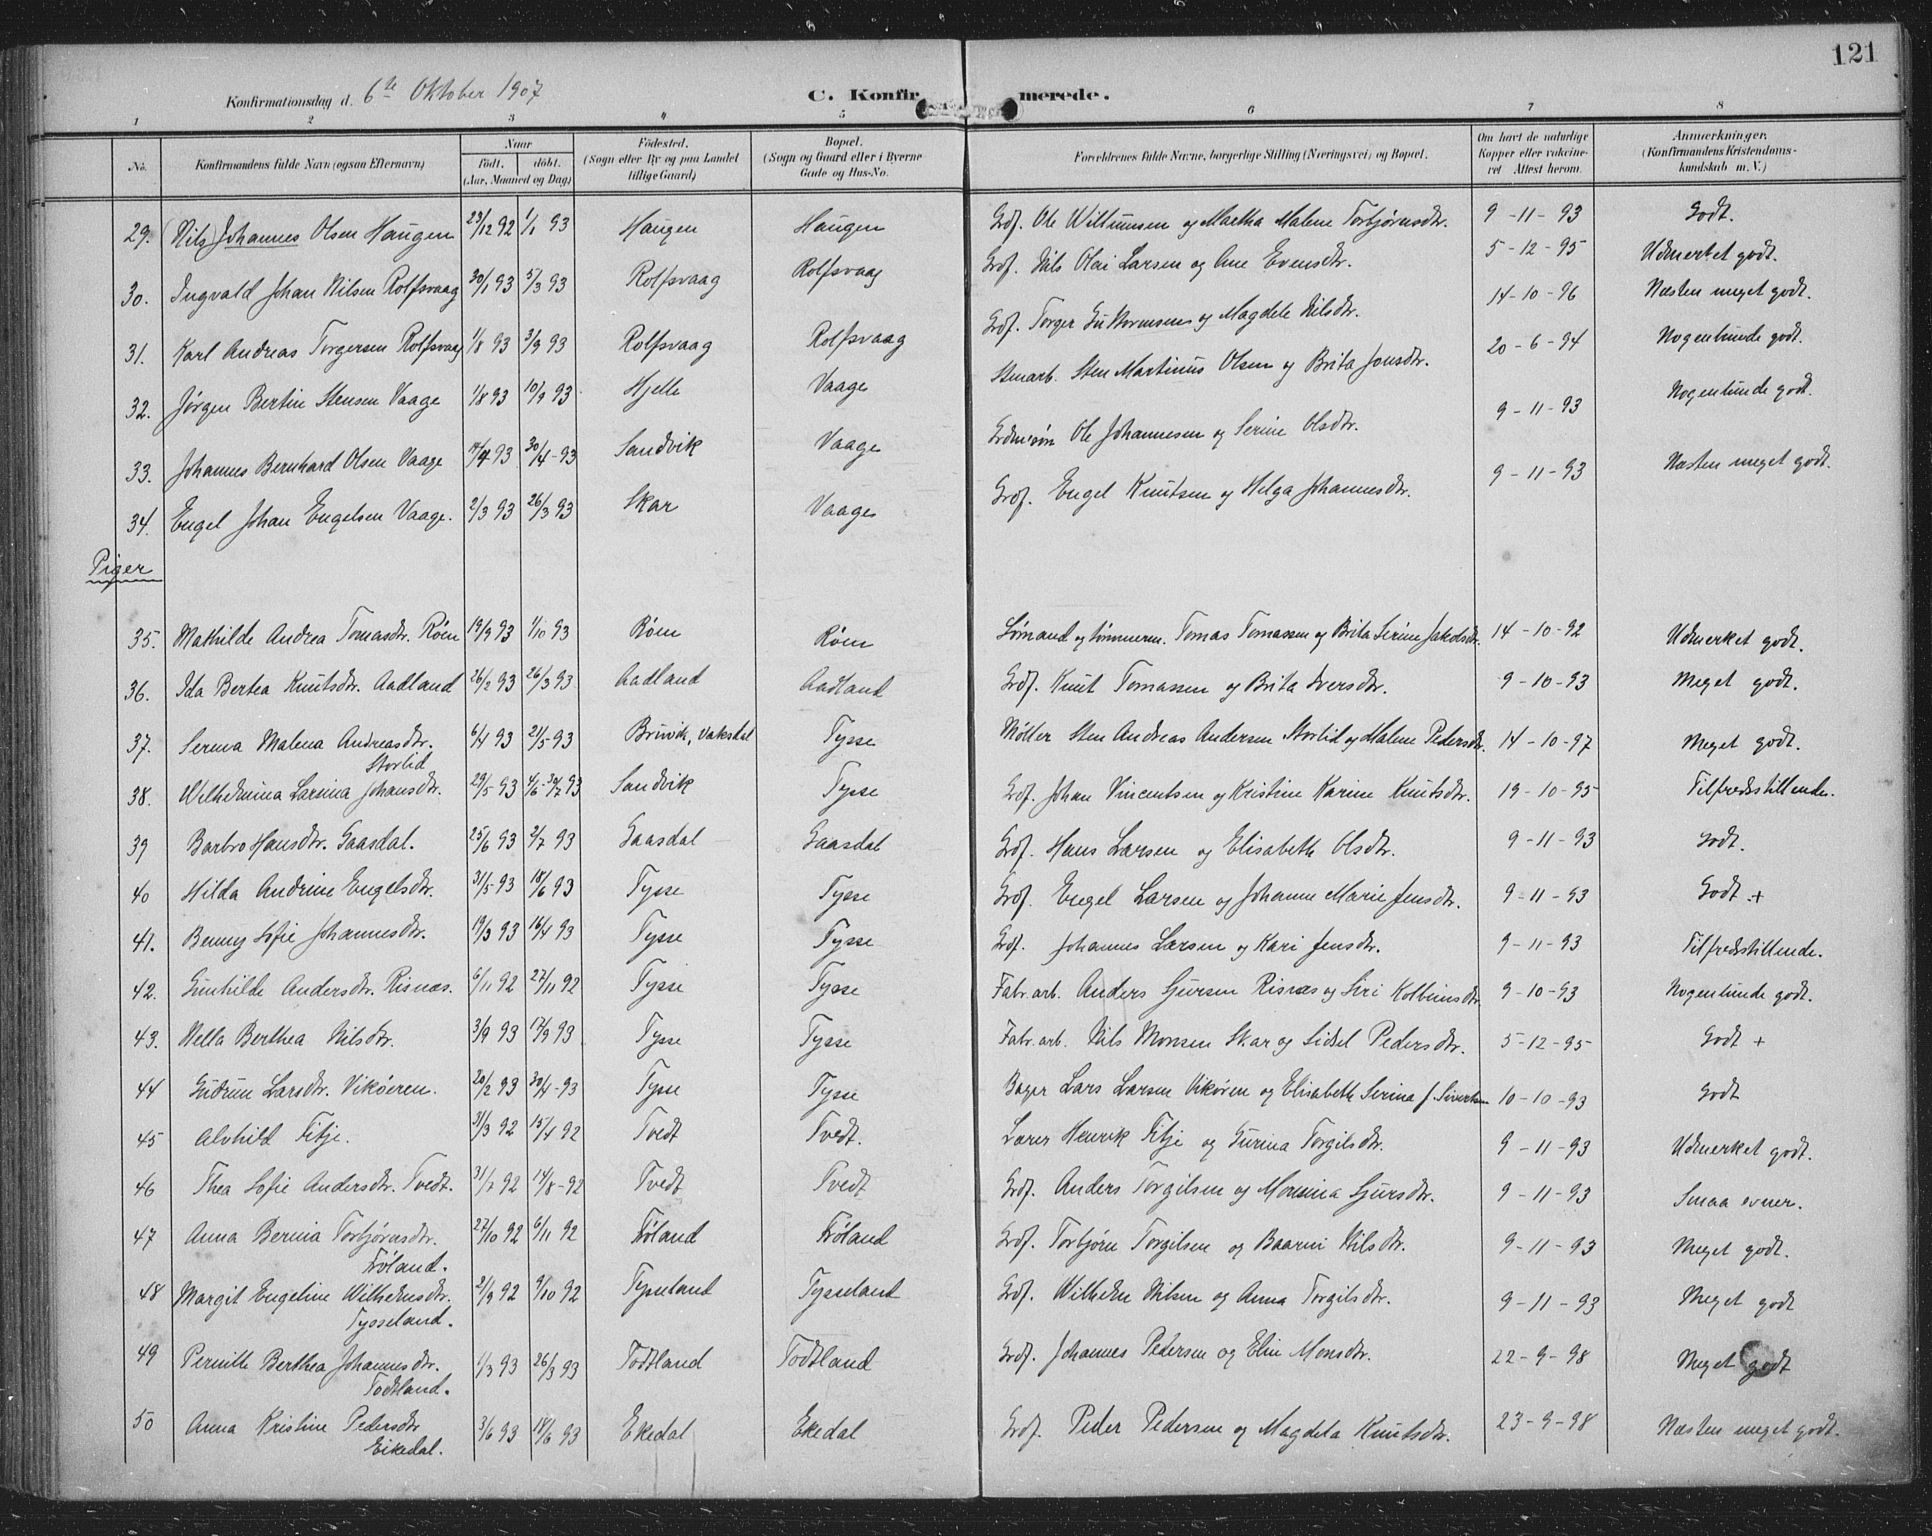 121
Konfirmationsdag d. 6te Oktober 1907
C. Konfirmerede.
1 2 3 4 5 6 7 8
No. Konfirmandens fulde Navn (ogsaa Efternavn) Naar Födt. döbt. (Aar, Maaned og Dag) Födested. (Sogn eller By og paa Landet tillige Gaard) Bopæl. (Sogn og Gaard eller i Byerne Gade og Hus-No. Forældrenes fulde Navne, borgerlige Stilling (Næringsvei) og Bopæl. Om havt de naturlige Kopper eller vakcineret Attest herom. Anmærkninger. (Konfirmandens Kristendomskundskab m. V.)
29. (Nils) Johannes Olsen Haugen 23/12 92 1/1 93 Haugen Haugen Grdf. Ole Willumsen og Martha Malene Torbjørnsdtr. 9-11-93 Godt.
30. Ingvald Johan Nilsen Rolfsvaag 30/1 93 5/3 93 Rolfsvaag Rolfsvaag Grdf. Nils Olai Larsen og Ane Evensdtr. 5-12-95 Udmerket godt.
31. Karl Andreas Torgersen Rolfsvaag 1/8 93 3/9 93 Rolfsvaag Rolfsvaag Grdf. Torger Guttormsen og Magdele Nilsdtr. 14-10-96 Næsten meget godt.
32. Jørgen Bertin Stensen Vaage 1/8 93 10/9 93 Hjelle Vaage Stenarb. Sten Martinus Olsen og Brita Jonsdtr. 20-6-94 Nogenlunde godt.
33. Johannes Bernhard Olsen Vaage 93 30/4-93 Sandvik Vaage Ole Johannesen og Serine Olsdtr. 9-11-93 Nogenlunde godt.
34. Engel Johan Engelsen Vaage. 2/3 93 26/3 93 Skar Vaage Grdf. Engel Knutsen og Helga Johannesdtr. 9-11-93 Næsten meget godt.
Piger
35. Mathilde Andrea Tomasdtr. Röen 19/9 93 1/10 93 Röen Röen Tomas Tomassen og Brita Serine Jakobsdtr. 14-10-92 Udmerket godt.
36. Ida Bertea Knutsdtr. Aadland 26/2 93 26/3 93 Aadland Aadland Grdf. Knut Tomassen og Brita Iversdtr. 9-10-93 Meget godt.
37. Serina Malena Andreasdtr. 6/4 93 21/5-93 Bruvik, Vaksdal Tysse Møller Sten Andreas Andersen Storlid og Malene Pedersdtr. 14-10-97 Meget godt.
Storlid
38. Wilhelmina Larsina Johansdtr. 29/5 93 4/6-30/7 93 Sandvik Tysse Grdf. Johan Vincentsen og Kristine Karine Knutsdtr. 19-10-95 Tilfredsstillende.
39 Barbro Hansdtr. Gaasdal. 25/6 93 2/7 93 Gaasdal Gaasdal Grdf. Hans Larsen og Elisabeth Olsdtr. 9-11-93 Godt.
40 Hilda Andrine Engelsdtr. 31/5-93 18/6 93 Tysse Tysse Grdf. Engel Larsen og Johanne Marie Jensdtr. 9-11-93 Godt +
41. Benny Sofie Johannesdtr. 19/3 93 16/4 93 Tysse Tysse Grdf. Johannes Larsen og Kari Jensdtr. 9-11-93 Tilfredsstillende.
42. Gunhilde Andersdtr. Risnæs. 6/11 92 27/11 92 Tysse Tysse Fabr. arb. Anders Gjursen Risnæs og Siri Kolbeinsdtr 9-10-93 Nogenlunde godt.
43. Nella Berthea Nilsdtr. 3/9 93 17/9 93 Tysse Tysse Fabr. arb. Nils Monsen Skar og Sidsel Pedersdtr. 5-12-95 Godt +
44 Gudrun Larsdtr. Vikøren. 20/2 93 30/4-93 Tysse Tysse Bager Lars Larsen Vikøren og Elisabeth Serina f. Sivertsen 10-10-93 Godt
45 Alvhild Fitje. 31/3 92 15/4 92 Tvedt Tvedt. Lærer Henrik Fitje og Gurina Torgilsdtr. 9-11-93 Udmerket godt.
46 Thea Sofie Andersdtr. Tvedt. 31/7 92 14/8-92 Tvedt Tvedt Grdf. Anders Torgilsen og Monsina Gjursdtr. 9-11-93 Smaa evner.
47 Anna Berina Torbjørnsdtr. 27/10 92 6/11 92 Fröland Fröland Grdf. Torbjörn Torgilsen og Baarni Nilsdtr. 9-11-93 Meget godt.
Fröland.
48 Margit Engeline Wilhelmsdtr. 2/9 92 9/10 92 Tysseland Tysseland Grdf. Wilhelm Nilsen og Anna Torgilsdtr. 9-11-93 Meget godt
Tysseland.
49 Pernille Berthea Johannesdtr. 1/3 93 26/3 93 Todtland Todtland Grdf. Johannes Pedersen og Elin Monsdtr. 22-9-98 Meget godt
Todtland.
50 Anna Kristine Pedersdtr 3/6 93 18/6 93 Ekedal Ekedal Grdf. Peder Pedersen og Magdela Knutsdtr. 23-9-98 Næsten meget godt.
Eikedal.